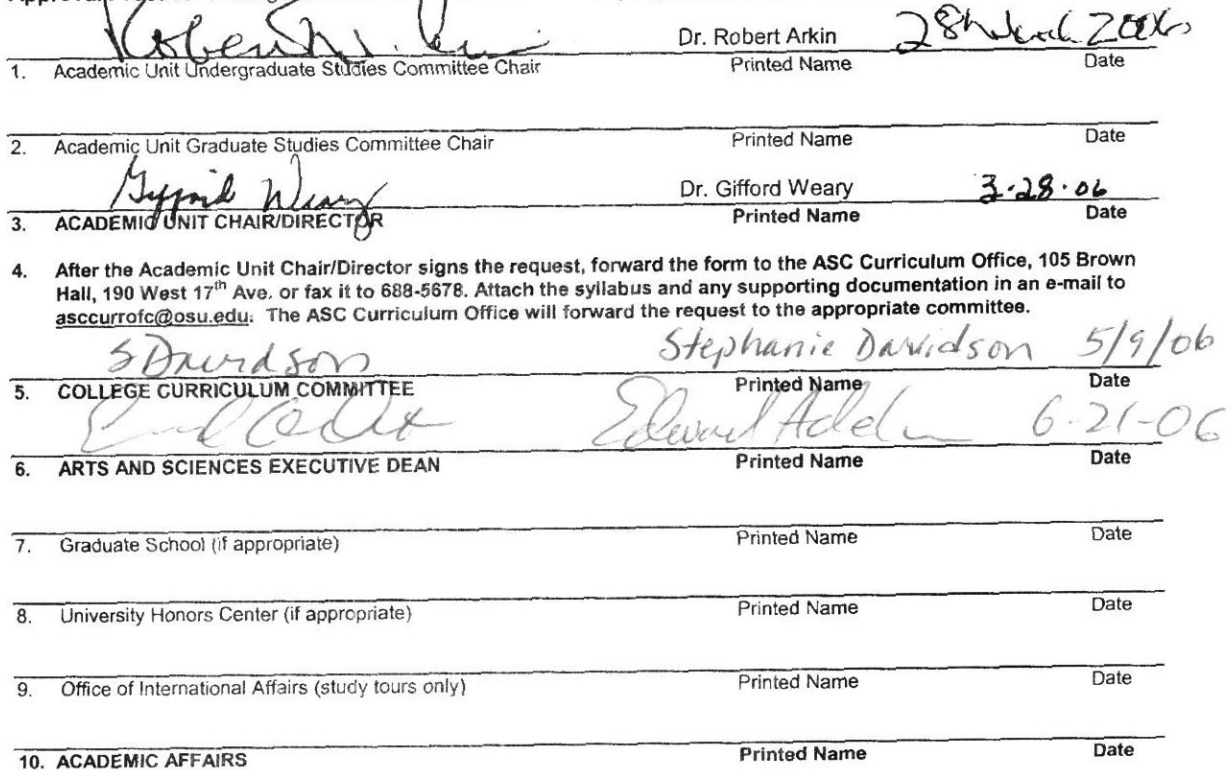 Dr. Robert Arkin 28 March 2006
1. Academic Unit Undergraduate Studies Committee Chair Printed Name Date
2. Academic Unit Graduate Studies Committee Chair Printed Name Date
Gifford Weary Dr. Gifford Weary 3·28·06
3. ACADEMIC UNIT CHAIR/DIRECTOR Printed Name Date
4. After the Academic Unit Chair/Director signs the request, forward the form to the ASC Curriculum Office, 105 Brown
Hall, 190 West 17th Ave. or fax it to 688-5678. Attach the syllabus and any supporting documentation in an e-mail to
asccurrofc@osu.edu. The ASC Curriculum Office will forward the request to the appropriate committee.
SDavidson Stephanie Davidson 5/9/06
5. COLLEGE CURRICULUM COMMITTEE Printed Name Date
Edward 6-21-06
6. ARTS AND SCIENCES EXECUTIVE DEAN Printed Name Date
7. Graduate School (if appropriate) Printed Name Date
8. University Honors Center (if appropriate) Printed Name Date
9. Office of International Affairs (study tours only) Printed Name Date
10. ACADEMIC AFFAIRS Printed Name Date